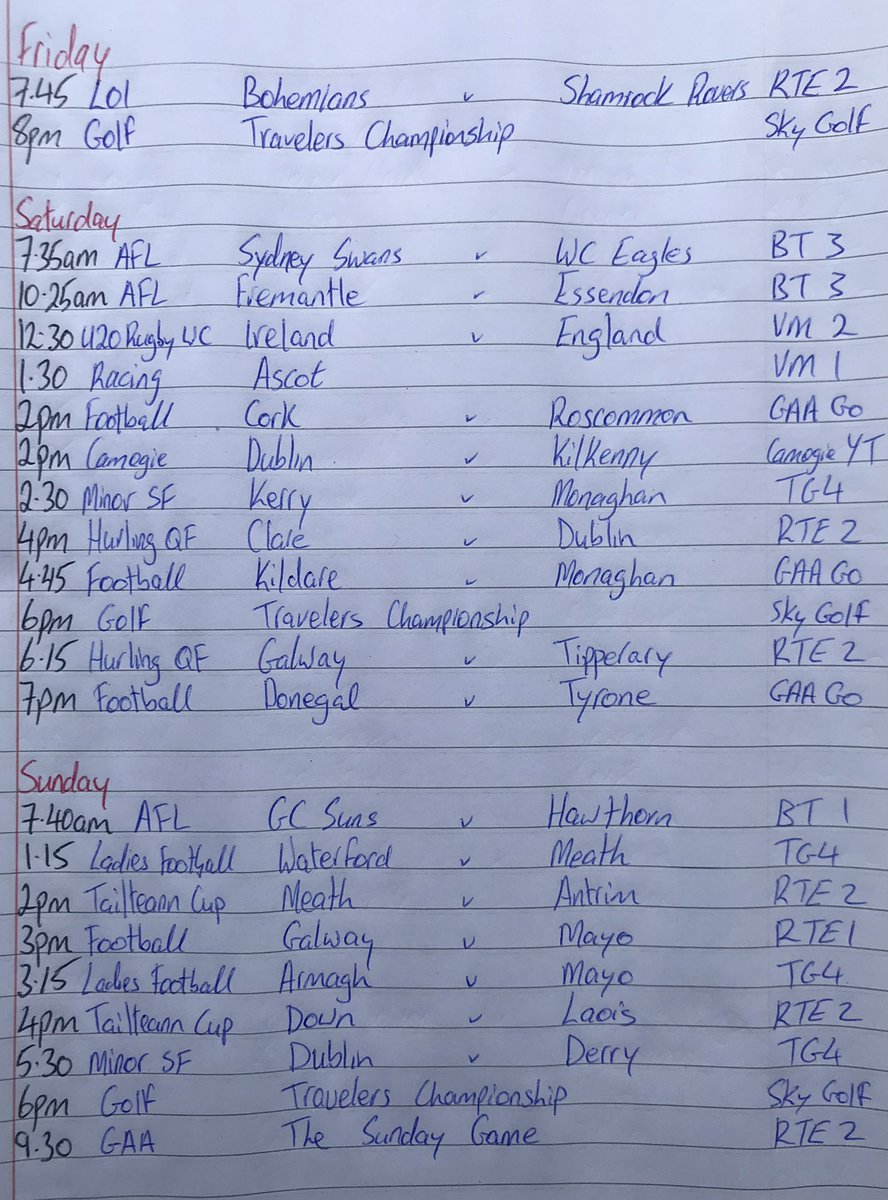 Friday
7.45 LOI Bohemians v Shamrock Rovers RTE 2
8pm Golf Travelers Championship Sky Golf
Saturday
7.35am AFL Sydney Swans v WC Eagles BT 3
10.25am AFL Fremantle v Essendon BT 3
12.30 U20 Rugby WC Ireland v England VM 2
1.30 Racing Ascot VM 1
2pm Football Cork v Roscommon GAA Go
2pm Camogie Dublin v Kilkenny Camogie YT
2.30 Minor SF Kerry v Monaghan TG4
4pm Hurling QF Clare v Dublin RTE 2
4.45 Football Kildare v Monaghan GAA Go
6pm Golf Travelers Championship Sky Golf
6.15 Hurling QF Galway v Tipperary RTE 2
7pm Football Donegal v Tyrone GAA Go
Sunday
7.40am AFL GC Suns v Hawthorn BT 1
1.15 Ladies Football Waterford v Meath TG4
2pm Tailteann Cup Meath v Antrim RTE 2
3pm Football Galway v Mayo RTE1
3.15 Ladies Football Armagh v Mayo TG4
4pm Tailteann Cup Down v Laois RTE 2
5.30 Minor SF Dublin v Derry TG4
6pm Golf Travelers Championship Sky Golf
9.30 GAA The Sunday Game RTE 2